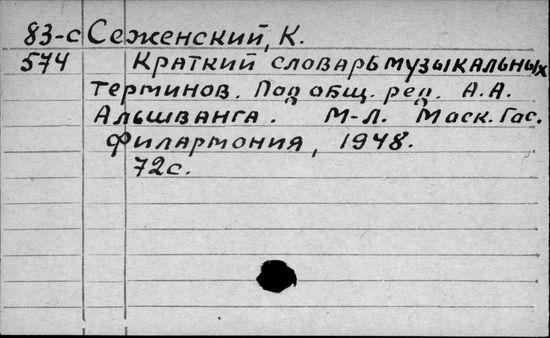 83-с Сеженский, К.
574 Краткий словарь музыкальных
терминов. Под общ. ред. А.А.
Альшванга. М-Л. Моск. Гос.
филармония, 1948.
72с.